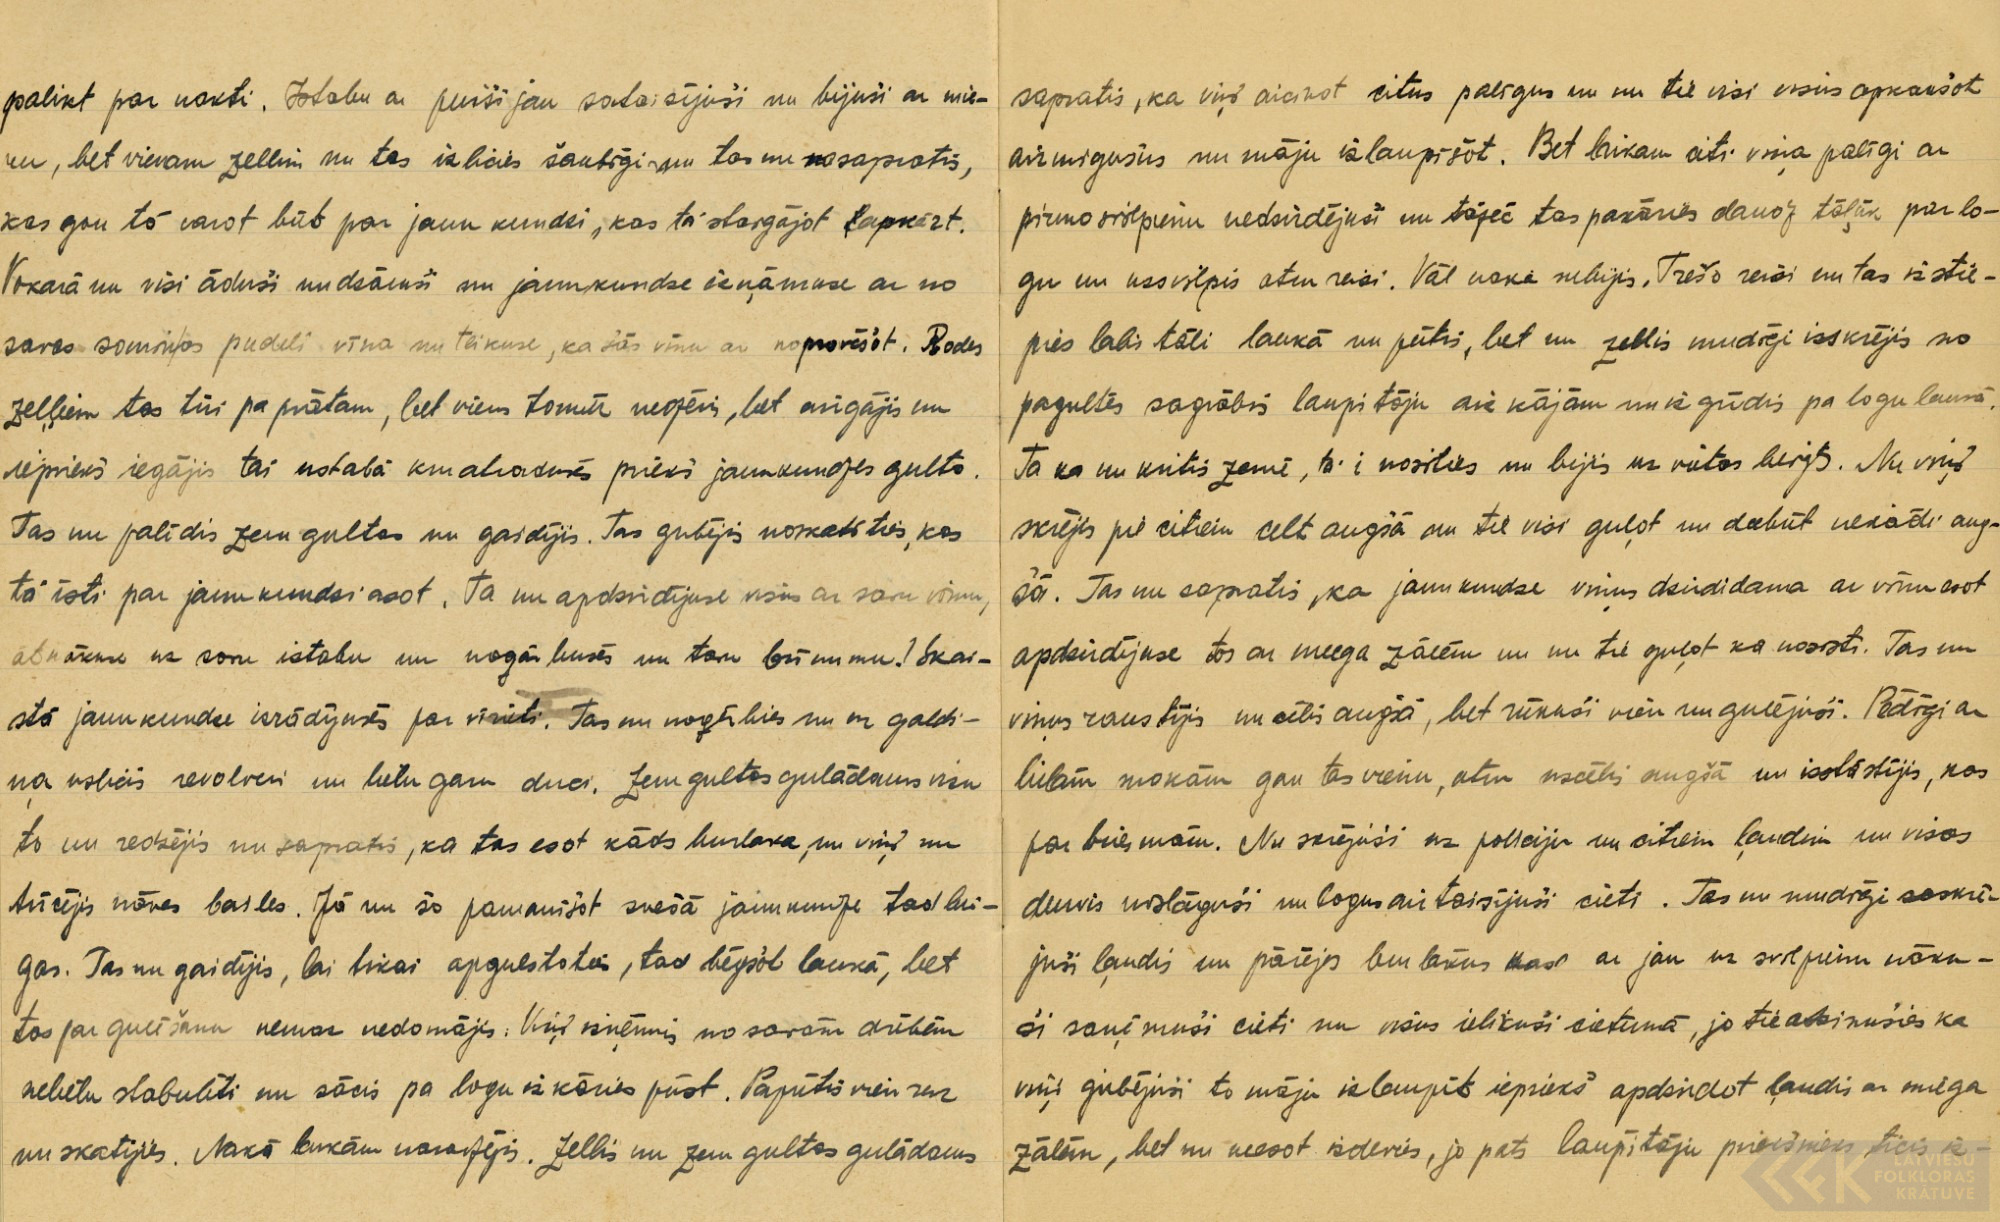 palikt par nakti. Istabu ar puiši jau sataisījuši un bijuši ar mie-
ru, bet vienam zellim nu tas izlicies šaubīgi un tas nu nasapratis,
kas gan tā varot būt par jaunkundzi, kas tā staigājot apkārt.
Vakarā nu visi āduši un dzāruši un jaunkundze izņāmuse ar no
savas somiņas pudeli vīna un teikuse, ka šās vīnu ar nopravēšot. Rades
zeļļiem tas tūri pa prātam, bet viens tomēr nedzēris, bet aizgājis un
iepriekš iegājis tai ustabā kur atraduses priekš jaunkundzes gulta.
Tas nu palīdis zem gultas un gaidījis. Tas gribējis noskatīties, kas
tā īsti par jaunkundzi asot. Ta nu apdzirdījuse visus ar savu vīnu,
atnākuse uz savu istabu un nogārbusēs un tavu brīnumu! Skai-
stā jaunkundze izrādījusēs par vīrieti. Tas nu nogērbies nu uz galdi-
ņa uzlicis revolveri un lielu garu dunci. Zem gultas gulādams visu
to nu redzējis un sapratis, ka tas esot kāds burlaks, un viņš nu
trīcējis nāves bailes. Jā nu šo pamanīšot svešā jaunkundze tad bei-
gas. Tas nu gaidījis, lai tikai apgulstoties, tad bēgšot laukā, bet
tas par gulēšanu nemaz nedomājis. Viņš izņēmis no savām drēbēm
nelielu stabulīti un sācis pa logu izkāries pūst. Papūtis vien reiz
un skatījies. Nakā laukām navarējis. Zellis nu zem gultas gulādams
sapratis, ka viņš aicinot citus palīgus un nu tie visi visus apkaušot
aizmigušus un māju izlaupīšot. Bet laikam citi viņa palīgi ar
pirmo svilpienu nedzirdējuši un tāpēc tas pakāries daudz tāļāk par lo-
gu un uzsvilpis otru reisi. Vāl nakā nebijis. Trešo reisi nu tas izstie-
pies labi tāli laukā un pūtis, bet nu zellis mudīgi isskrējis no
pagultes sagrābis laupītāju aiz kājām un izgrūdis pa logu laukā.
Ta ka nu kritis zemē, tā i nosities un bijis uz vietas beigts. Nu viņš
skrējis pie citiem celt augšā nu tie visi guļot un dabūt nekādi aug-
šā. Tas nu sapratis, ka jaunkundze viņus dzirdidama ar vīnu esot
apdzirdījuse tos ar meega zālēm un nu tie guļot ka nosisti. Tas nu
viņus raustījis un cēlis augšā, bet rūkuši vien un gulējuši. Pēdīgi ar
lielām mokām gan tas vienu, otru uzcēlis augšā un isstāstījis, kas
par briesmām. Nu skrējuši uz policiju un citiem ļaudim un visas
durvis noslāguši un logus aiztaisījuši cieti. Tas nu mudīgi saskrē-
juši ļaudis un pārējos burlakus kas ar jau uz svilpienu nāku-
ši saņēmuši cieti un visus ielikuši cietumā, jo tie atzinušies ka
viņi gribējuši to māju izlaupīt iepriekš apdzirdot ļaudis ar miega
zālēm, bet nu neesot izdevies, jo pats laupītāju priekšnieks ticis iz-
LATVIEŠU
FOLKLORAS
KRĀTUVE